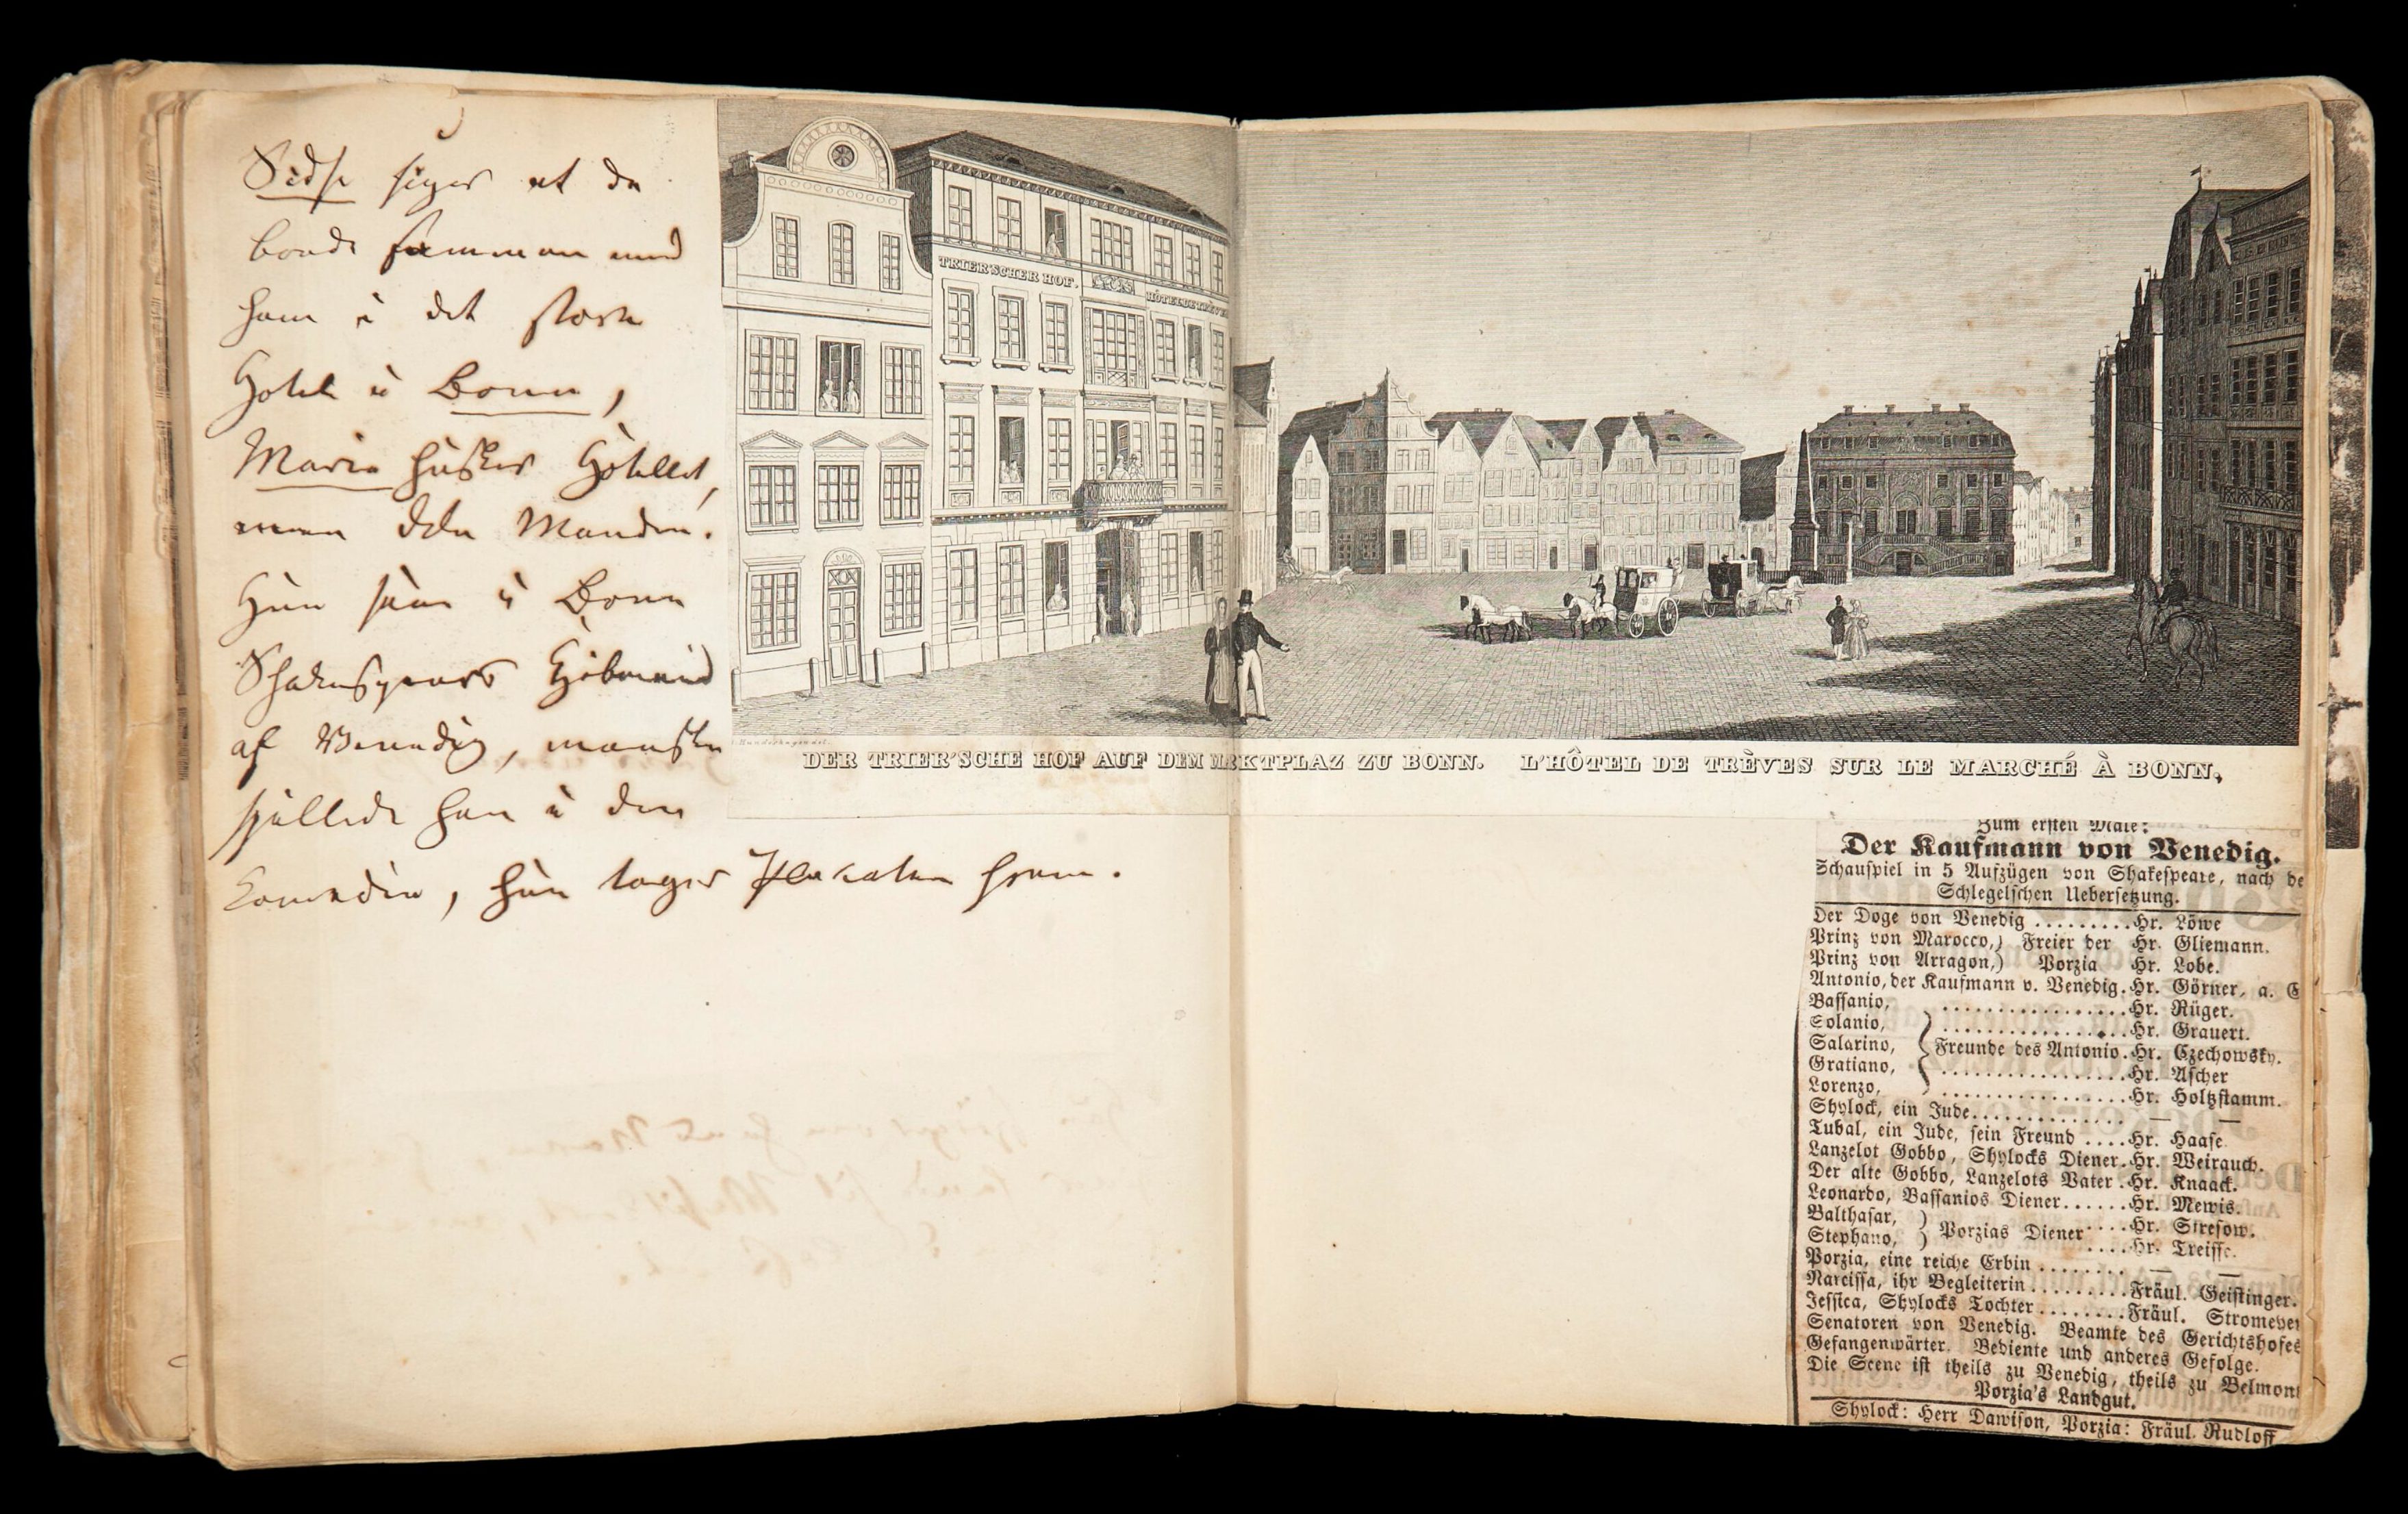 Sidse siger at de
boede sammen med
ham i det store
Hotel i Bonn,
Marie husker Hotellet,
men ikke Manden.
Hun saae i Bonn
Shakespears Kjöbmand
af Venedig, maaskee
spillede han i den
Comedie, hun tager Plakaten frem.
TRIER'SCHER HOF.
HÔTEL DE TRÈVES
DER TRIER'SCHE HOF AUF DEM MARKTPLAZ ZU BONN. L'HÔTEL DE TRÈVES SUR LE MARCHÉ À BONN,
Zum ersten Male:
Der Kaufmann von Venedig.
Schauspiel in 5 Aufzügen von Shakespeare, nach de
Schlegelschen Uebersetzung.
Der Doge von Venedig .........Hr. Löwe
Prinz von Marocco,) Freier der Hr. Gliemann.
Prinz von Arragon,) Porzia Hr. Lobe.
Antonio, der Kaufmann v. Venedig.Hr. Görner, a. G
Bassanio, ..................Hr. Rüger.
Solanio, ..................Hr. Grauert.
Salarino, Freunde des Antonio.Hr. Czechowsky.
Gratiano, ..................Hr. Ascher
Lorenzo, ..................Hr. Holtzstamm.
Shylock, ein Jude............... — —
Tubal, ein Jude, sein Freund ....Hr. Haase.
Lanzelot Gobbo, Shylocks Diener.Hr. Weirauch.
Der alte Gobbo, Lanzelots Vater .Hr. Knaack.
Leonardo, Bassanios Diener......Hr. Mewis.
Balthasar, ) Porzias Diener ....Hr. Stresow.
Stephano, ) ....Hr. Treisse.
Porzia, eine reiche Erbin ........ — —
Narcissa, ihr Begleiterin.........Fräul. Geistinger.
Jessica, Shylocks Tochter........Fräul. Stromeyer
Senatoren von Venedig. Beamte des Gerichtshofes
Gefangenwärter. Bediente und anderes Gefolge.
Die Scene ist theils zu Venedig, theils zu Belmont
Porzia's Landgut.
Shylock: Herr Dawison, Porzia: Fräul. Rudloff